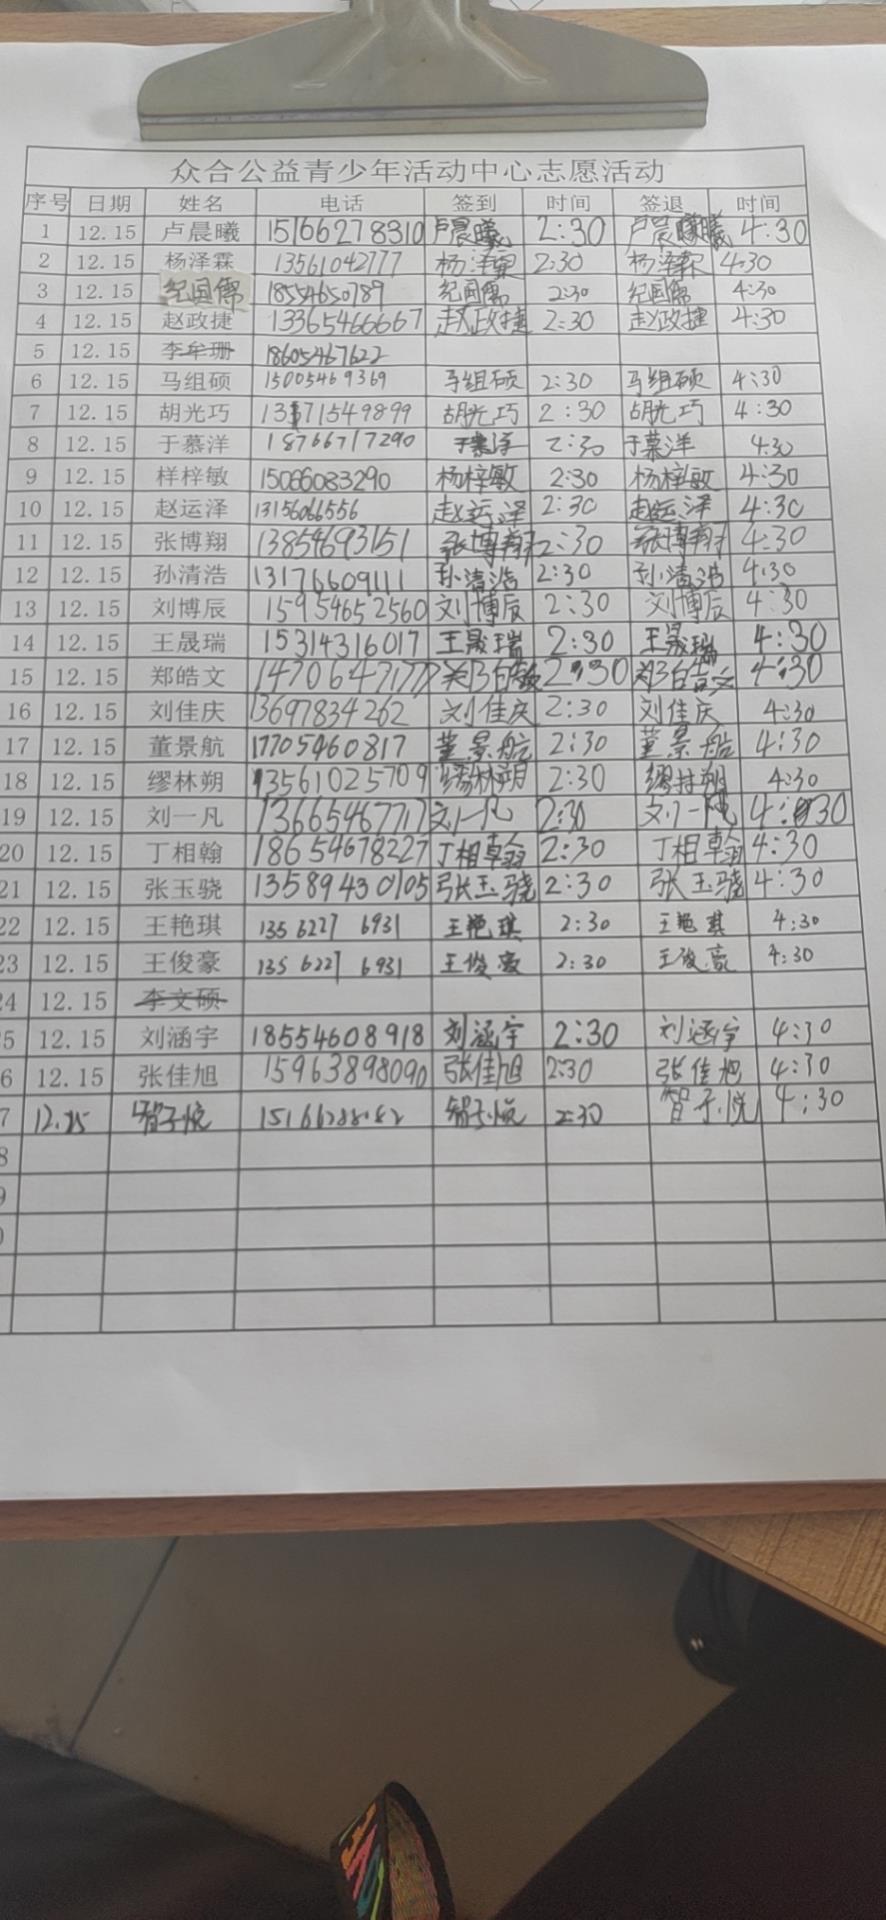 众合公益青少年活动中心志愿活动
序号 日期 姓名 电话 签到 时间 签退 时间
1 12.15 卢晨曦 15166278310 卢晨曦 2:30 卢晨曦 4:30
2 12.15 杨泽霖 13561042777 杨泽霖 2:30 杨泽霖 4:30
3 12.15 纪国儒 18554650789 纪国儒 2:30 纪国儒 4:30
4 12.15 赵政捷 13365466667 赵政捷 2:30 赵政捷 4:30
5 12.15 李牟珊 18605467622
6 12.15 马组硕 15005469369 马组硕 2:30 马组硕 4:30
7 12.15 胡光巧 13371549899 胡光巧 2:30 胡光巧 4:30
8 12.15 于慕洋 18766717290 于慕洋 2:30 于慕洋 4:30
9 12.15 样梓敏 15066083290 杨梓敏 2:30 杨梓敏 4:30
10 12.15 赵运泽 13156066556 赵运泽 2:30 赵运泽 4:30
11 12.15 张博翔 13854693151 张博翔 2:30 张博翔 4:30
12 12.15 孙清浩 13176609111 孙清浩 2:30 孙清浩 4:30
13 12.15 刘博辰 15954652560 刘博辰 2:30 刘博辰 4:30
14 12.15 王晟瑞 15314316017 王晟瑞 2:30 王晟瑞 4:30
15 12.15 郑皓文 14706471777 2:30 郑皓文 4:30
16 12.15 刘佳庆 13697834262 刘佳庆 2:30 刘佳庆 4:30
17 12.15 董景航 17705460817 董景航 2:30 董景船 4:30
18 12.15 缪林朔 13561025709 缪林朔 2:30 缪林朔 4:30
19 12.15 刘一凡 13665467717 刘一凡 2:30 刘一凡 4:30
20 12.15 丁相翰 18654678227 丁相翰 2:30 丁相翰 4:30
21 12.15 张玉骁 13589430105 张玉骁 2:30 张玉骁 4:30
22 12.15 王艳琪 13562276931 王艳琪 2:30 王艳琪 4:30
23 12.15 王俊豪 13562276931 王俊豪 2:30 王俊豪 4:30
24 12.15 李文硕
5 12.15 刘涵宇 18554608918 刘涵宇 2:30 刘涵宇 4:30
6 12.15 张佳旭 15963898090 张佳旭 2:30 张佳旭 4:30
7 12.15 智子悦 2:30 智子悦 4:30
8
9
0